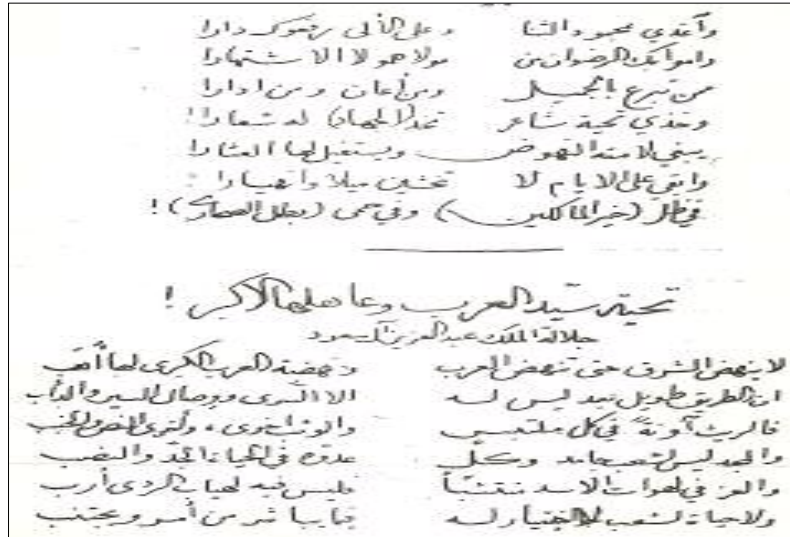 وأغدي محمود الثنا وعلى الألى رفعوك دارا
مولاهمو لا الاشتهارا
ممن تبرع بالجميل ومن أعان ومن ادارا
وخذي تحية شاعر تخذ (الجهاد) له شعارا!
يبني لامته النهوض ويستقيل لها العثارا
وابقي على الايام لا تخشين ميلا وانهيارا!
في ظل (خير المالكين) وفي حمى (بطل الصحارى)!
تحية سيد العرب وعاهلها الاكبر!
جلالة الملك عبد العزيز آل سعود
لا ينهض الشرق حتى تنهض العرب ونهضة العرب الكبرى لها أهب
ان الطريق طويل بعد ليس له الا السرى ووصال السير والدأب
فالريث آونة في كل ملتمس والوثب اخرى،
والمجد ليس لشعب جامد وكل عدوه في الحياة الجد والنصب
والعز في لهوات الاسد منتشبا فليس فيه لهياب الردى أرب
ولا حياة لشعب لا اختيار له فيما يباشر من أمر ويجتنب